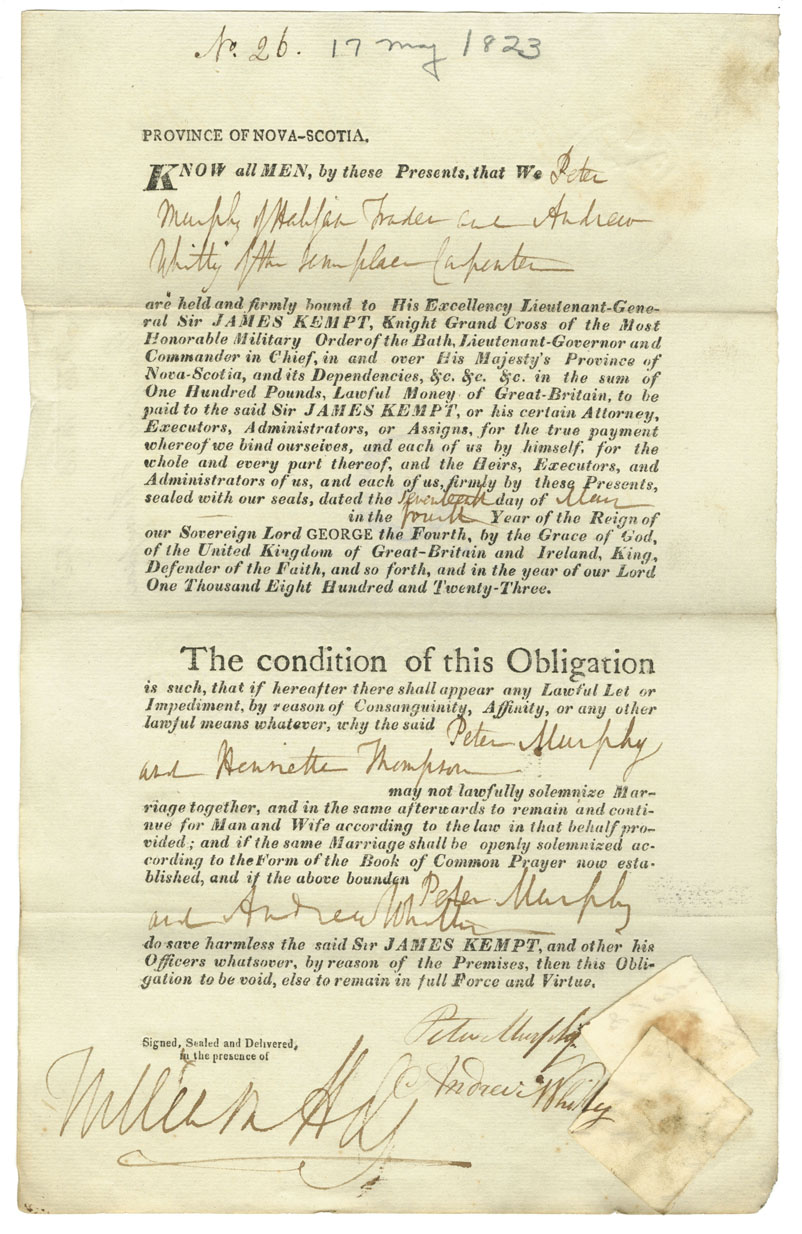 No. 26. 17 May 1823
PROVINCE OF NOVA-SCOTIA.
KNOW all MEN, by these Presents, that We Peter
Murphy of Halifax Trader and Andrew
Whitty of the same place Carpenter
are held and firmly bound to His Excellency Lieutenant-Gene-
ral Sir JAMES KEMPT, Knight Grand Cross of the Most
Honorable Military Order of the Bath, Lieutenant-Governor and
Commander in Chief, in and over His Majesty's Province of
Nova-Scotia, and its Dependencies, &c. &c. &c. in the sum of
One Hundred Pounds, Lawful Money of Great-Britain, to be
paid to the said Sir JAMES KEMPT, or his certain Attorney,
Executors, Administrators, or Assigns, for the true payment
whereof we bind ourselves, and each of us by himself, for the
whole and every part thereof, and the Heirs, Executors, and
Administrators of us, and each of us, firmly by these Presents,
sealed with our seals, dated the seventeenth day of May
in the fourth Year of the Reign of
our Sovereign Lord GEORGE the Fourth, by the Grace of God,
of the United Kingdom of Great-Britain and Ireland, King,
Defender of the Faith, and so forth, and in the year of our Lord
One Thousand Eight Hundred and Twenty-Three.
The condition of this Obligation
is such, that if hereafter there shall appear any Lawful Let or
Impediment, by reason of Consanguinity, Affinity, or any other
lawful means whatever, why the said Peter Murphy
and Henriette Thompson
may not lawfully solemnize Mar-
riage together, and in the same afterwards to remain and conti-
nue for Man and Wife according to the law in that behalf pro-
vided; and if the same Marriage shall be openly solemnized ac-
cording to the Form of the Book of Common Prayer now esta-
blished, and if the above bounden Peter Murphy
and Andrew Whitty
do save harmless the said Sir JAMES KEMPT, and other his
Officers whatsover, by reason of the Premises, then this Obli-
gation to be void, else to remain in full Force and Virtue.
Signed, Sealed and Delivered,
in the presence of
Peter Murphy
Andrew Whitty